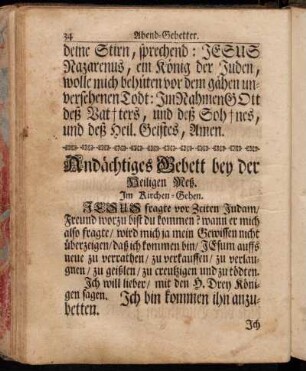 34 Abend-Gebetter.
deine Stirn, sprechend: JESUS
Nazarenus, ein König der Juden,
wolle mich behüten vor dem gähen un-
versehenen Todt: Jm Nahmen GOtt
deß Vat†ters, und deß Soh†nes,
und deß Heil. Geistes, Amen.
Andächtiges Gebett bey der
Heiligen Meß.
Jm Kirchen-Gehen.
JESUS fragte vor Zeiten Judam/
Freund worzu bist du kommen? wann er mich
also fragte/ wird mich ja mein Gewissen nicht
überzeigen/ daß ich kommen bin/ JEsum auffs
neue zu verrathen/ zu verkauffen/ zu verlaug-
gnen/ zu geißlen/ zu creutzigen und zu tödten.
Jch will lieber/ mit den H. Drey Köni-
gen sagen. Jch bin kommen ihn anzu-
betten.
Jch